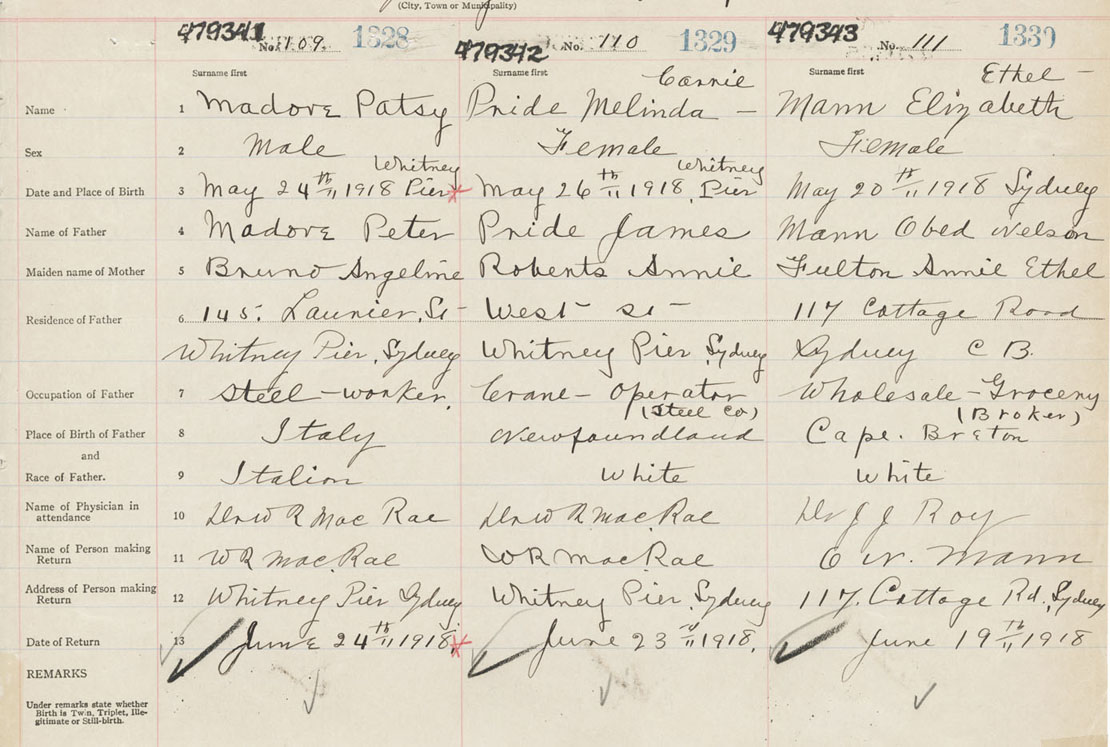 (City, Town or Municipality)
479341 No. 109. 1328 479342 No. 110 1329 479343 No. 111 1330
Surname first Surname first Surname first
Carrie Ethel -
Name 1 Madore Patsy Pride Melinda - Mann Elizabeth
Sex 2 Male Female Female
Whitney Whitney
Date and Place of Birth 3 May 24th 1918 Pier May 26th 1918, Pier May 20th 1918 Sydney
Name of Father 4 Madore Peter Pride James Mann Obed Nelson
Maiden name of Mother 5 Bruno Angeline Roberts Annie Fulton Annie Ethel
Residence of Father 6 145. Laurier, St- West St - 117 Cottage Road
Whitney Pier, Sydney Whitney Pier, Sydney Sydney C B.
Occupation of Father 7 Steel-worker. Crane-Operator Wholesale-Grocery
(Steel Co) (Broker)
Place of Birth of Father 8 Italy Newfoundland Cape. Breton
and
Race of Father. 9 Italian White White
Name of Physician in
attendance 10 Dr W R MacRae Dr W R MacRae Dr J J Roy
Name of Person making
Return 11 W R MacRae W R MacRae O N. Mann
Address of Person making
Return 12 Whitney Pier Sydney Whitney Pier, Sydney 117. Cottage Rd., Sydney
Date of Return 13 June 24th 1918, June 23rd 1918, June 19th 1918
REMARKS
Under remarks state whether
Birth is Twin, Triplet, Ille-
gitimate or Still-birth.